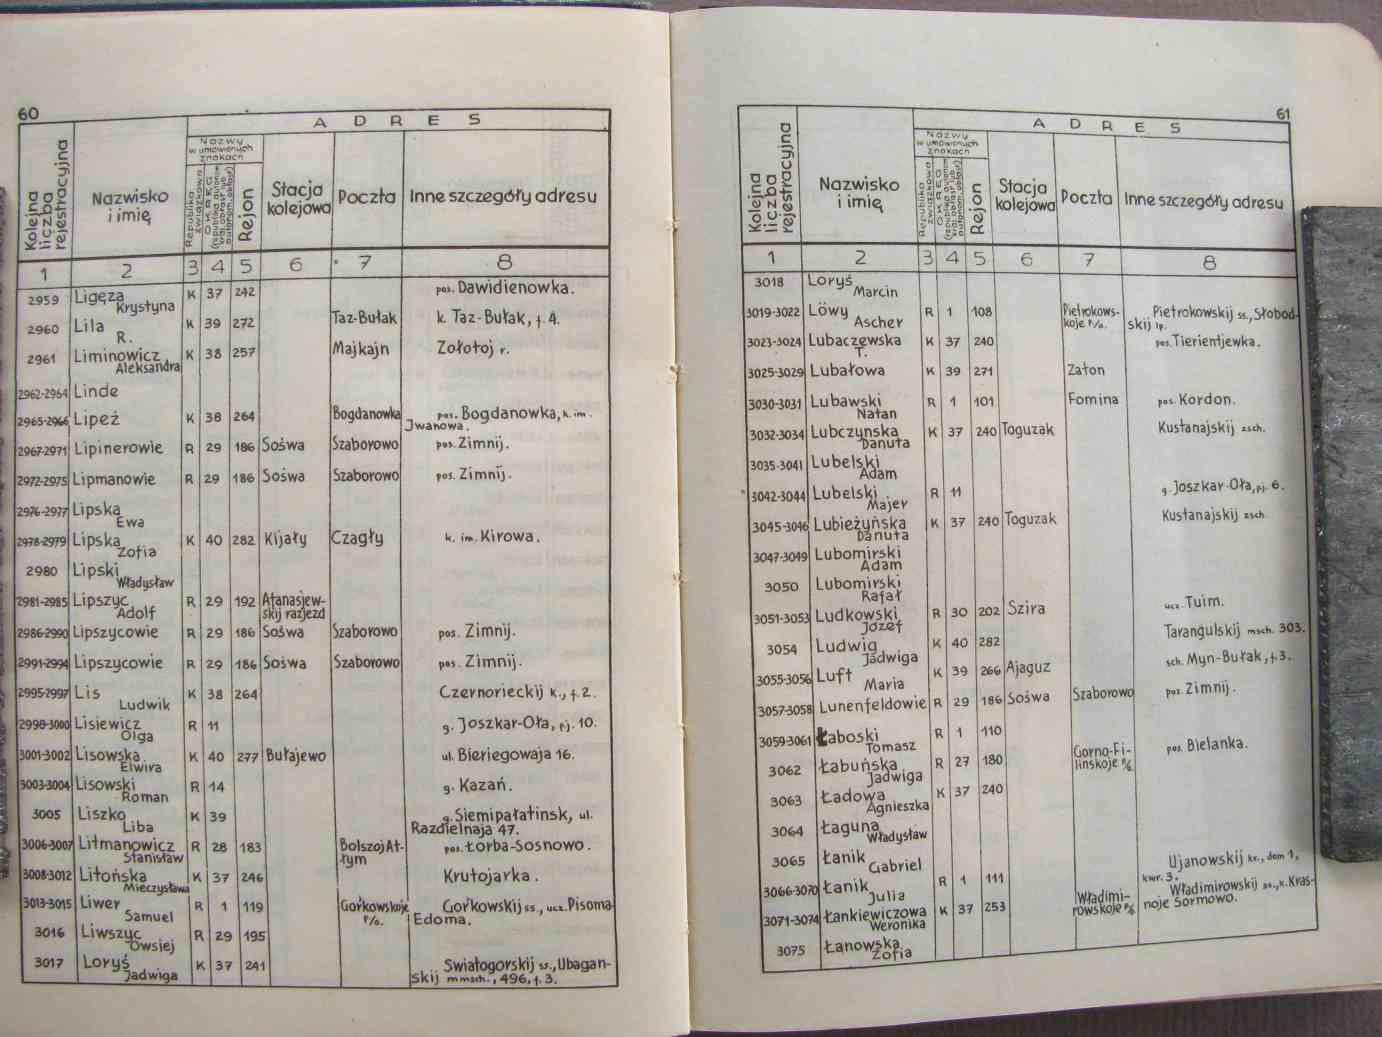 60
A D R E S
Kolejna liczba rejestracyjna
Nazwisko i imię
Nazwy w umówionych znakach
Republika związkowa
OKRĘG
Rejon
Stacja kolejowa
Poczta
Inne szczegóły adresu
1 2 3 4 5 6 7 8
2959 Ligęza Krystyna K 37 242 pos. Dawidienowka.
2960 Lila R. K 39 272 Taz-Bułak k. Taz-Bułak, f. 4.
2961 Liminowicz Aleksandra K 38 257 Majkajn Zołotoj r.
2962-2964 Linde
2965-2966 Lipeż K 38 264 Bogdanowka pos. Bogdanowka, k. im. Jwanowa.
2967-2971 Lipinerowie R 29 186 Sośwa Szaborowo pos. Zimnij.
2972-2975 Lipmanowie R 29 186 Sośwa Szaborowo pos. Zimnij.
2976-2977 Lipska Ewa
2978-2979 Lipska Zofia K 40 282 Kijały Czagły k. im. Kirowa.
2980 Lipski Władysław
2981-2985 Lipszyc Adolf R 29 192 Afanasjew-skij razjezd
2986-2990 Lipszycowie R 29 186 Sośwa Szaborowo pos. Zimnij.
2991-2994 Lipszycowie R 29 186 Sośwa Szaborowo pos. Zimnij.
2995-2997 Lis Ludwik K 38 264 Czernorieckij k., f. 2.
2998-3000 Lisiewicz Olga R 11 g. Joszkar-Oła, pj. 10.
3001-3002 Lisowska Elwira K 40 277 Bułajewo ul. Bieriegowaja 16.
3003-3004 Lisowski Roman R 14 g. Kazań.
3005 Liszko Liba K 39 g. Siemipałatinsk, ul. Razdielnaja 47.
3006-3007 Litmanowicz Stanisław R 28 183 Bolszoj At-łym pos. Łorba-Sosnowo.
3008-3012 Litońska Mieczysława K 37 246 Krutojarka.
3013-3015 Liwer Samuel R 1 119 Gorkowskoje p/o. Gorkowskij ss., ucz. Pisoma-Edoma.
3016 Liwszyc Owsiej R 29 195
3017 Loryś Jadwiga K 37 241 Swiatogorskij ss., Ubagan-skij mmsch., 496, f. 3.
61
A D R E S
Kolejna liczba rejestracyjna
Nazwisko i imię
Nazwy w umówionych znakach
Republika związkowa
OKRĘG
Rejon
Stacja kolejowa
Poczta
Inne szczegóły adresu
1 2 3 4 5 6 7 8
3018 Loryś Marcin
3019-3022 Löwy Ascher R 1 108 Pietrokows-koje p/o. Pietrokowskij ss., Słobod-skij lp.
3023-3024 Lubaczewska T. K 37 240 pos. Tierientjewka.
3025-3029 Lubałowa K 39 271 Zaton
3030-3031 Lubawski Natan R 1 101 Fomina pos. Kordon.
3032-3034 Lubczyńska Danuta K 37 240 Toguzak Kustanajskij zsch.
3035-3041 Lubelski Adam
3042-3044 Lubelski Majer R 11 g. Joszkar-Oła, pj. 6.
3045-3046 Lubieżyńska Danuta K 37 240 Toguzak Kustanajskij zsch.
3047-3049 Lubomirski Adam
3050 Lubomirski Rafał
3051-3053 Ludkowski Józef R 30 202 Szira ucz. Tuim.
3054 Ludwig Jadwiga K 40 282 Tarangulskij msch. 303.
3055-3056 Luft Maria K 39 266 Ajaguz sch. Myn-Bułak, f. 3.
3057-3058 Lunenfeldowie R 29 186 Sośwa Szaborowo pos. Zimnij.
3059-3061 Łaboski Tomasz R 1 110
3062 Łabuńska Jadwiga R 27 180 Gorno-Fi-linskoje p/o pos. Bielanka.
3063 Ładowa Agnieszka K 37 240
3064 Łaguna Władysław
3065 Łanik Gabriel
3066-3070 Łanik Julia R 1 111 Ujanowskij kr., dom 1, kwr. 3.
3071-3074 Łankiewiczowa Weronika K 37 253 Władimi-rowskoje p/o Władimirowskij ss., k. Kras-noje Sormowo.
3075 Łanowska Zofia